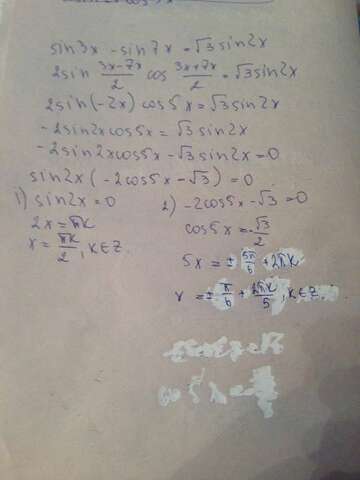 sin3x - sin7x = √3 sin2x
2sin (3x-7x)/2 cos (3x+7x)/2 = √3 sin2x
2sin(-2x) cos5x = √3 sin2x
-2sin2x cos5x = √3 sin2x
-2sin2x cos5x - √3 sin2x = 0
sin2x(-2cos5x - √3) = 0
1) sin2x = 0
2x = πk
x = πk/2, k∈Z.
2) -2cos5x - √3 = 0
cos5x = -√3/2
5x = ± 5π/6 + 2πk
x = ± π/6 + 2πk/5, k∈Z.
cos5x =